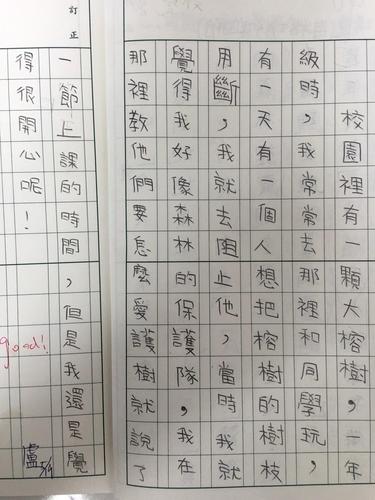 校園裡有一顆大榕樹，一年
級時，我常常去那裡和同學玩，
有一天有一個人想把榕樹的樹枝
用斷，我就去阻止他，當時我就
覺得我好像森林的保護隊，我在
那裡教他們要怎麼愛護樹就說了
訂正
一節上課的時間，但是我還是覺
得很開心呢！
good!
盧